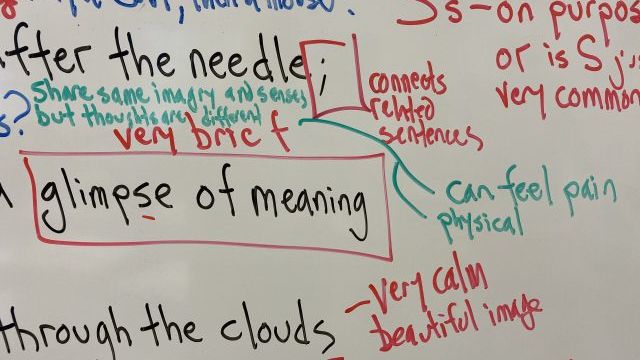 Ss-on purpos
or is S j
very common
fter the needle;
connects
related
sentences
s? Share same imagry and senses
but thoughts are different
very brief
glimpse of meaning
can feel pain
physical
through the clouds
-very calm
beautiful image